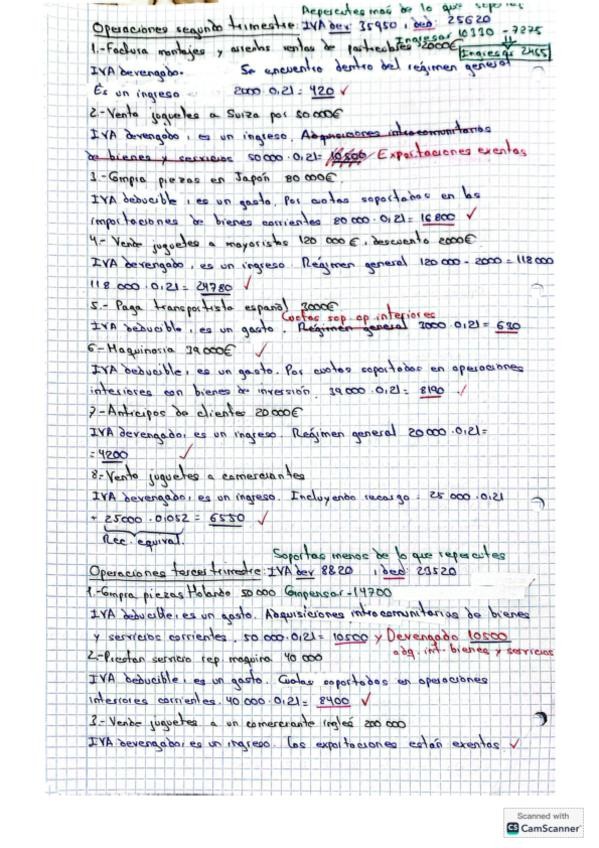 Repercutes más de lo que soportas
Operaciones segundo trimestre: IVA dev 35950, ded: 25620
Ingresar 10330 - 7275
1.- Factura montajes y asientos ventas de 2000€
Ingresar
IVA devengado. Se encuentra dentro del régimen general
Es un ingreso 2000 · 0,21 = 420 ✓
2.- Venta juguetes a Suiza por 50 000€
IVA devengado, es un ingreso. Adquisiciones intracomunitarias
de bienes y servicios 50 000 · 0,21 = 10500 Exportaciones exentas
3.- Compra piezas en Japón 80 000€.
IVA deducible, es un gasto. Por cuotas soportadas en las
importaciones de bienes corrientes 80 000 · 0,21 = 16 800 ✓
4.- Vende juguetes a mayoristas 120 000 €, descuento 2000€
IVA devengado, es un ingreso. Régimen general 120 000 - 2000 = 118 000
118 000 · 0,21 = 24780 ✓
5.- Paga transportista español 3000€
Cuotas sop. op. interiores
IVA deducible, es un gasto. Régimen general 3000 · 0,21 = 630
6.- Maquinaria 39 000€ ✓
IVA deducible, es un gasto. Por cuotas soportadas en operaciones
interiores con bienes de inversión. 39 000 · 0,21 = 8190 ✓
7.- Anticipos de clientes 20 000€
IVA devengado, es un ingreso. Regimen general 20 000 · 0,21 =
= 4200 ✓
8.- Venta juguetes a comerciantes
IVA devengado, es un ingreso. Incluyendo recargo = 25 000 · 0,21
+ 25000 · 0,052 = 6550 ✓
Rec. equival.
Soportas menos de lo que repercutes
Operaciones tercer trimestre: IVA dev 8820, ded: 23520
1.- Compra piezas Holanda 50 000 Compensar -14700
IVA deducible, es un gasto. Adquisiciones intracomunitarias de bienes
y servicios corrientes. 50 000 · 0,21 = 10500 y Devengado 10500
adq. int. bienes y servicios
2.- Prestan servicio rep. maquina 40 000
IVA deducible, es un gasto. Cuotas soportadas en operaciones
interiores corrientes. 40 000 · 0,21 = 8400 ✓
3.- Vende juguetes a un comerciante inglés 200 000
IVA devengado, es un ingreso. Las exportaciones están exentas. ✓
Scanned with
CS CamScanner